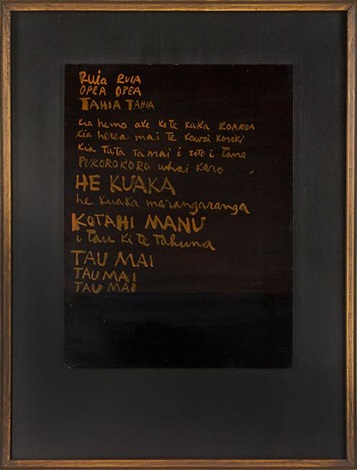 Ruia RUIA
OPEA OPEA
TAHIA TAHIA
kia hemo ake ko te kaka KOAKOA
kia herea mai te kawai koroki
kia tata tamai i roto i tana
PUKOROKORO whai karo
HE KUAKA
he kuaka marangaranga
KOTAHI MANU
i tau ki te tahuna
TAU MAI
TAU MAI
TAU MAI